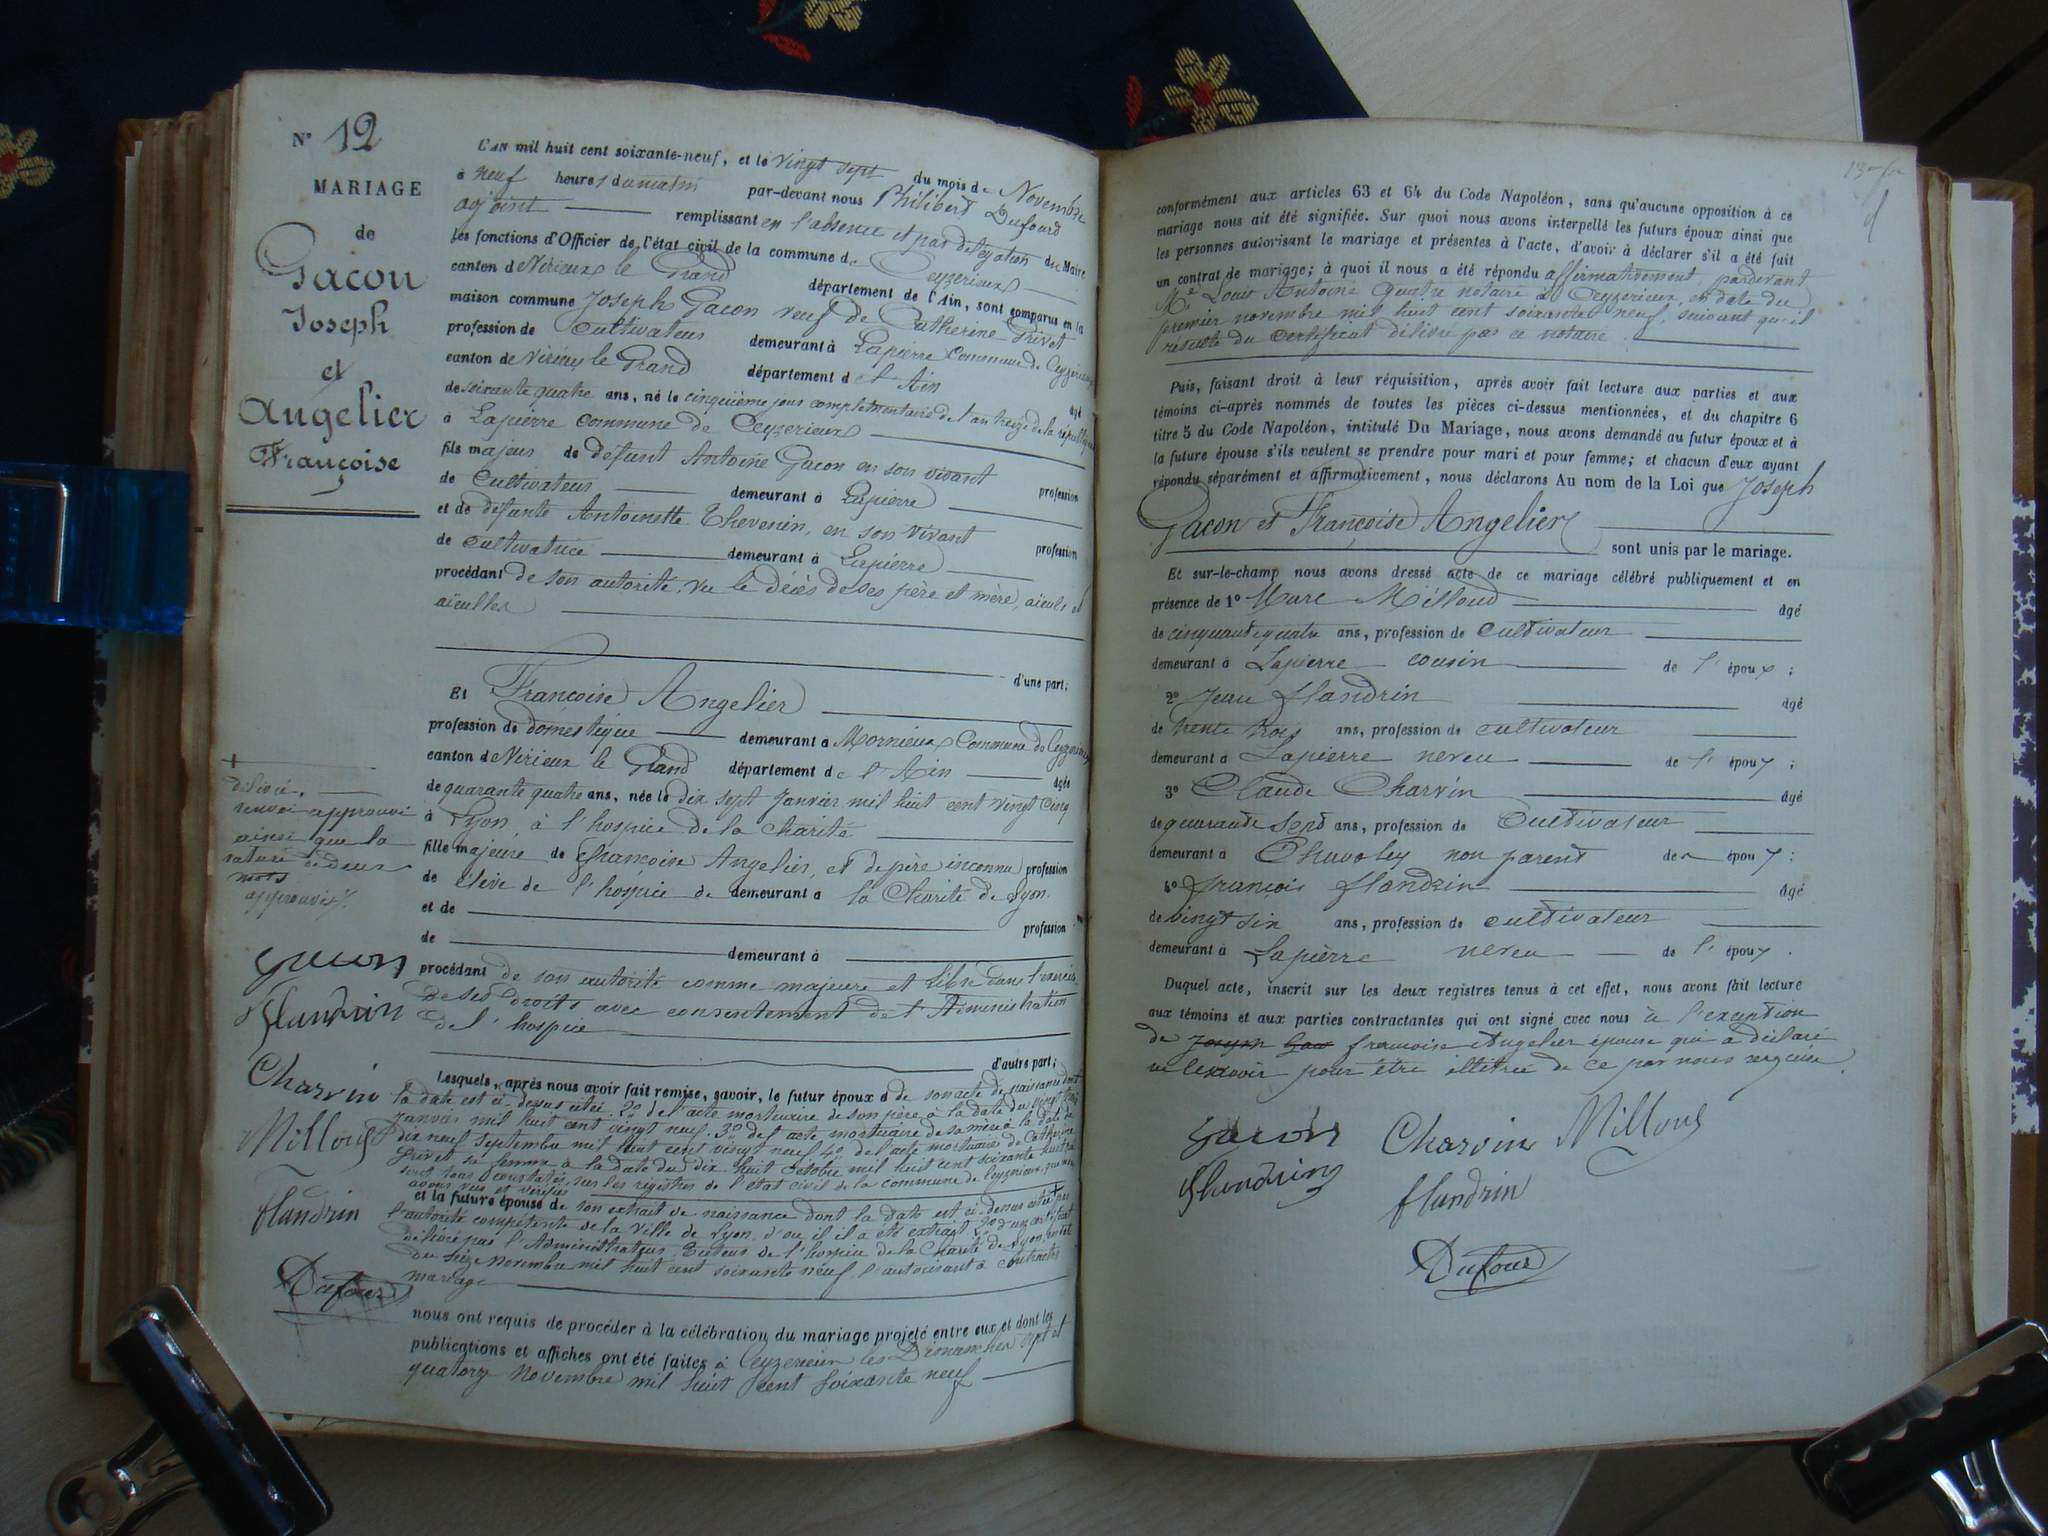 N° 12
MARIAGE
de
Gacon
Joseph
et
Angelier
Françoise
L'AN mil huit cent soixante-neuf, et le vingt sept du mois de Novembre
à neuf heures du matin par-devant nous Philibert Dufour
adjoint remplissant en l'absence et par délégation du Maire
les fonctions d'Officier de l'état civil de la commune de Ceyzerieux
canton de Virieux le Grand département de l'Ain, sont comparus en la
maison commune Joseph Gacon veuf de Catherine Privet
profession de cultivateur demeurant à Lapierre Commune de Ceyzerieux
canton de Virieux le Grand département de l'Ain âgé
de soixante quatre ans, né le cinquième jour complémentaire de l'an treize de la république
à Lapierre commune de Ceyzerieux
fils majeur de défunt Antoine Gacon en son vivant profession
de Cultivateur demeurant à Lapierre
et de défunte Antoinette Thevenin, en son vivant profession
de cultivatrice demeurant à Lapierre
procédant de son autorité, vu le décès de ses père et mère, aïeuls et
aïeulles
d'une part;
Et Françoise Angelier
profession de domestique demeurant à Mornieux Commune de Ceyzerieux
canton de Virieux le Grand département de l'Ain âgée
de quarante quatre ans, née le dix sept Janvier mil huit cent vingt cinq
à Lyon, à l'hospice de la charité
fille majeure de Françoise Angelier, et de père inconnu profession
de élève de l'hospice de demeurant à la Charité de Lyon
et de profession
de demeurant à
procédant de son autorité comme majeure et libre dans l'exercice
de ses droits avec consentement de l'Administration
de l'hospice
d'autre part;
Lesquels, après nous avoir fait remise, savoir, le futur époux d de son acte de naissance dont
la date est ci-dessus citée. 2° de l'acte mortuaire de son père à la date du vingt trois
Janvier mil huit cent vingt neuf. 3° de l'acte mortuaire de sa mère à la date du
dix neuf septembre mil huit cent vingt neuf 4° de l'acte mortuaire de Catherine
Privet sa femme à la date du dix huit octobre mil huit cent soixante huit
sont tous constatés sur les registres de l'état civil de la commune de Ceyzerieux, que nous
avons vus et vérifiés
et la future épouse de son extrait de naissance dont la date est ci-dessus citée + par
l'autorité compétente de la ville de Lyon d'où il a été extrait 2° d'un certificat
délivré par l'Administrateur Tuteur de l'hospice de la Charité de Lyon, en date
du seize novembre mil huit cent soixante neuf, l'autorisant à contracter
mariage
nous ont requis de procéder à la célébration du mariage projeté entre eux et dont les
publications et affiches ont été faites à Ceyzerieux les Dimanches sept et
quatorze Novembre mil huit cent soixante neuf
+
délivré.
renvoi approuvé
ainsi que la
rature de deux
mots
approuvés
Gacon
Flandrin
Charvin
Milloud
flandrin
Dufour
conformément aux articles 63 et 64 du Code Napoléon, sans qu'aucune opposition à ce
mariage nous ait été signifiée. Sur quoi nous avons interpellé les futurs époux ainsi que
les personnes autorisant le mariage et présentes à l'acte, d'avoir à déclarer s'il a été fait
un contrat de mariage; à quoi il nous a été répondu affirmativement, pardevant
Me Louis Antoine Quatre notaire à Ceyzerieux, en date du
premier novembre mil huit cent soixante neuf, suivant qu'il
résulte du certificat délivré par ce notaire
Puis, faisant droit à leur réquisition, après avoir fait lecture aux parties et aux
témoins ci-après nommés de toutes les pièces ci-dessus mentionnées, et du chapitre 6
titre 5 du Code Napoléon, intitulé Du Mariage, nous avons demandé au futur époux et à
la future épouse s'ils veulent se prendre pour mari et pour femme; et chacun d'eux ayant
répondu séparément et affirmativement, nous déclarons Au nom de la Loi que Joseph
Gacon et Françoise Angelier
sont unis par le mariage.
Et sur-le-champ nous avons dressé acte de ce mariage célébré publiquement et en
présence de 1° Marc Milloud âgé
de cinquante quatre ans, profession de cultivateur
demeurant à Lapierre cousin de l'époux;
2° Jean flandrin âgé
de trente trois ans, profession de cultivateur
demeurant à Lapierre neveu de l'époux;
3° Claude Charvin âgé
de quarante sept ans, profession de Cultivateur
demeurant à Chavoley non parent des époux;
4° françois flandrin âgé
de vingt six ans, profession de cultivateur
demeurant à Lapierre neveu de l'époux.
Duquel acte, inscrit sur les deux registres tenus à cet effet, nous avons fait lecture
aux témoins et aux parties contractantes qui ont signé avec nous à l'exception
de Joseph Gaco francoise Angelier épouse qui a déclaré
ne le savoir pour être illettrée de ce par nous requise.
Gacon
Charvin
Milloud
Flandrin
flandrin
Dufour